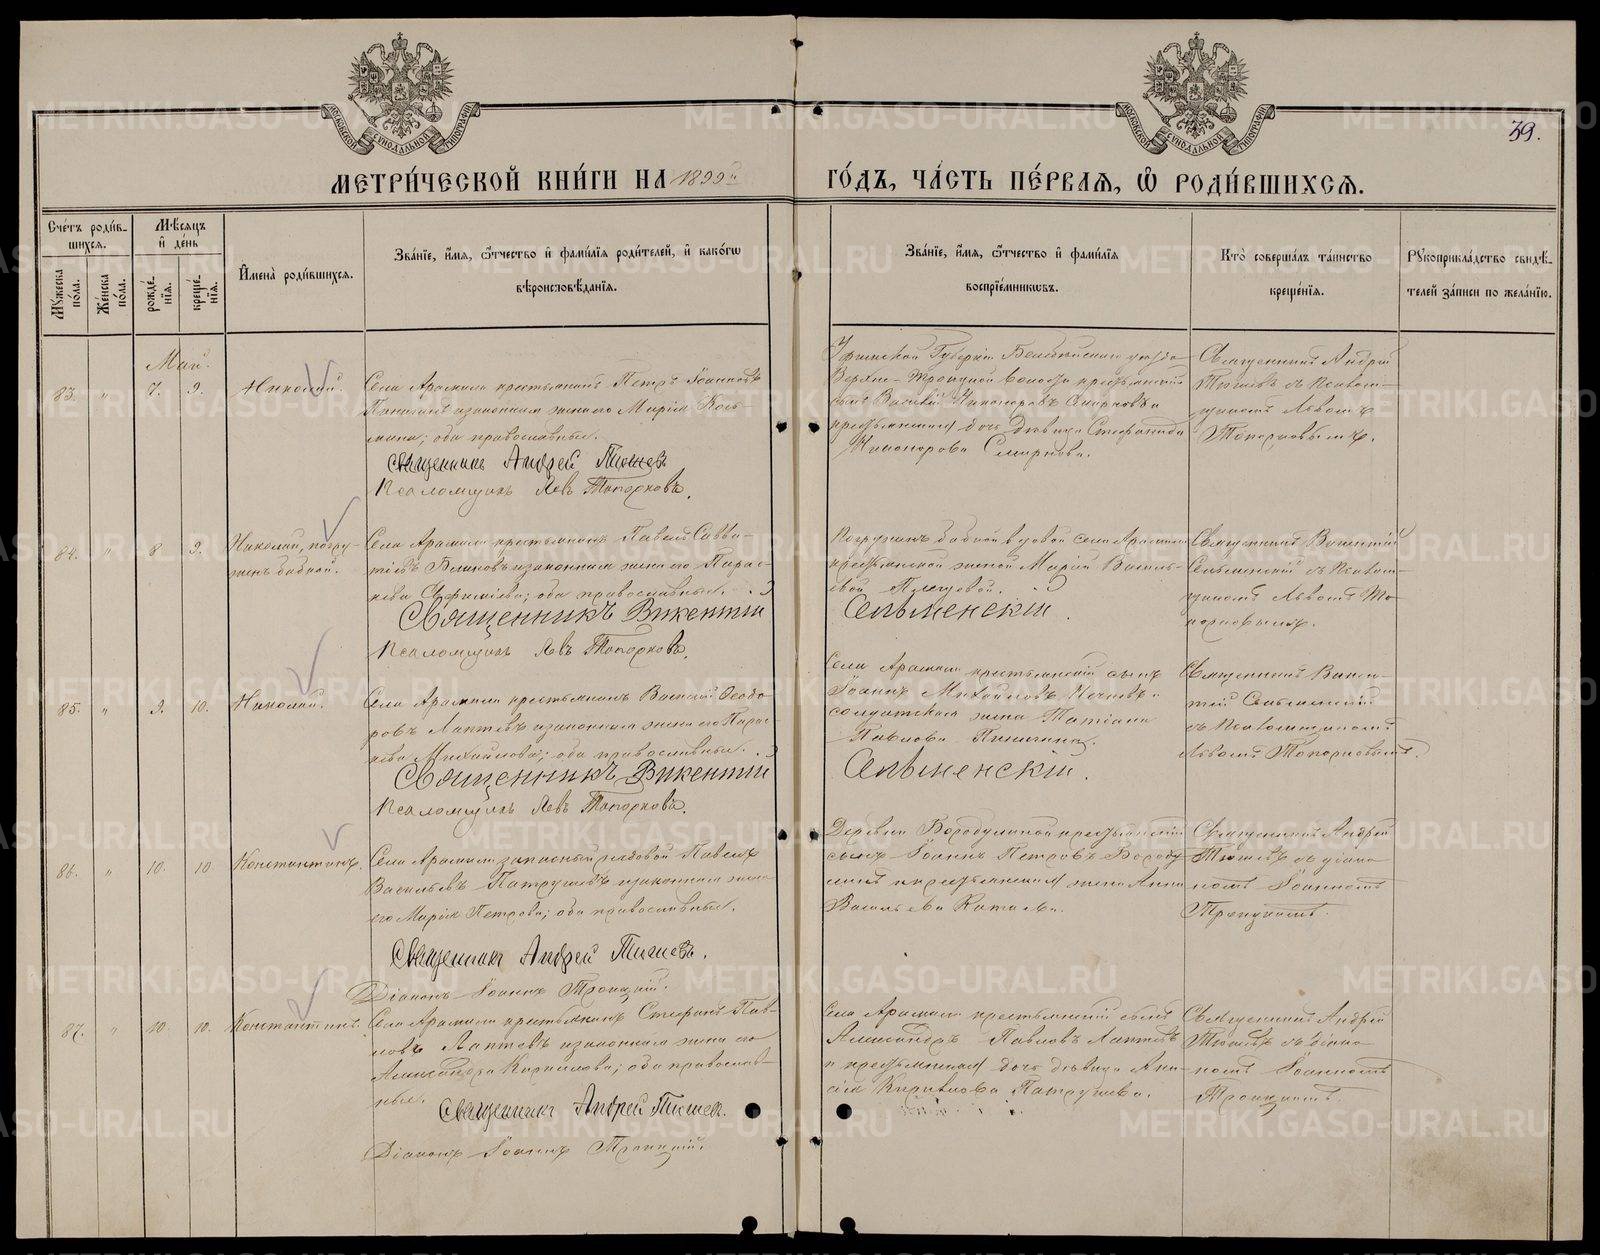 МОСКОВСКОЙ СѴНОДАЛЬНОЙ ТИПОГРАФІИ
МОСКОВСКОЙ СѴНОДАЛЬНОЙ ТИПОГРАФІИ
39.
МЕТРИ́ЧЕСКОЙ КНИ́ГИ НА 1899й
ГО́ДЪ, ЧА́СТЬ ПЕ́РВАЯ, Ѿ РОДИ́ВШИХСЯ.
Сче́тъ роди́вшихся.
Му́жеска по́ла.
Же́нска по́ла.
Мѣ́сяцъ и҆ де́нь
рожде́нїя.
креще́нїя.
И҆мена̀ роди́вшихся.
Зва́нїе, и҆́мя, ѻ҆́тчество и҆ фами́лїя роди́телей, и҆ како́гѡ
вѣроисповѣ́данїя.
Зва́нїе, и҆́мя, ѻ҆́тчество и҆ фами́лїя
воспрїе́мникѡвъ.
Кто̀ соверша́лъ та́инство
креще́нїя.
Рꙋкоприкла́дство свидѣ́-
телей за́писи по жела́нїю.
Май.
83. " 7. 9. Николай.
Села Арамили крестьянинъ Петръ Іоанновъ
и законная жена его Марія Козь-
мина; оба православные.
Священникъ Андрей
Псаломщикъ Левъ Топорковъ.
Уфимской Губерніи Белебейскаго уѣзда
Верхне-Троицкой волости крестьянскій
сынъ Василій Никаноровъ Смирновъ и
крестьянская дочь дѣвица Стефанида
Никанорова Смирнова.
Священникъ Андрей
съ псалом-
щикомъ Львомъ
Топорковымъ.
84. " 8. 9. Николай, погру-
женъ бабкой.
Села Арамили крестьянинъ Павелъ Савва-
и законная жена его Парас-
кева Ефиміева; оба православные.
Священникъ Викентій Сельменскій.
Псаломщикъ Левъ Топорковъ.
Погруженъ бабкой вдовой села Арамили
крестьянской женой Маріей Василь-
евой
Священникъ Викентій
Сельменскій съ псалом-
щикомъ Львомъ То-
порковымъ.
85. " 9. 10. Николай.
Села Арамили крестьянинъ Василій Ѳеодо-
ровъ Лаптевъ и законная жена его Парас-
кева Михайлова; оба православные.
Священникъ Викентій Сельменскій.
Псаломщикъ Левъ Топорковъ.
Села Арамили крестьянскій сынъ
Іоаннъ Михайловъ и
солдатская жена Татіана
Павлова
Священникъ Викен-
тій Сельменскій
съ псаломщикомъ
Львомъ Топорковымъ.
86. " 10. 10. Константинъ.
Села Арамили запасный рядовой Павелъ
Васильевъ Патрушевъ и законная жена
его Марія Петрова; оба православные.
Священникъ Андрей
Діаконъ Іоаннъ Троицкій.
Деревни Бородулиной крестьянскій
сынъ Іоаннъ Петровъ Бороду-
линъ и крестьянская жена Анна
Васильева
Священникъ Андрей
съ діако-
номъ Іоанномъ
Троицкимъ.
87. " 10. 10. Константинъ.
Села Арамили крестьянинъ Стефанъ Пав-
ловъ Лаптевъ и законная жена его
Александра Кириллова; оба православ-
ные.
Священникъ Андрей
Діаконъ Іоаннъ Троицкій.
Села Арамили крестьянскій сынъ
Александръ Павловъ Лаптевъ
и крестьянская дочь дѣвица Ани-
сія Кириллова Патрушева.
Священникъ Андрей
съ діако-
номъ Іоанномъ
Троицкимъ.
METRIKI.GASO-URAL.RU